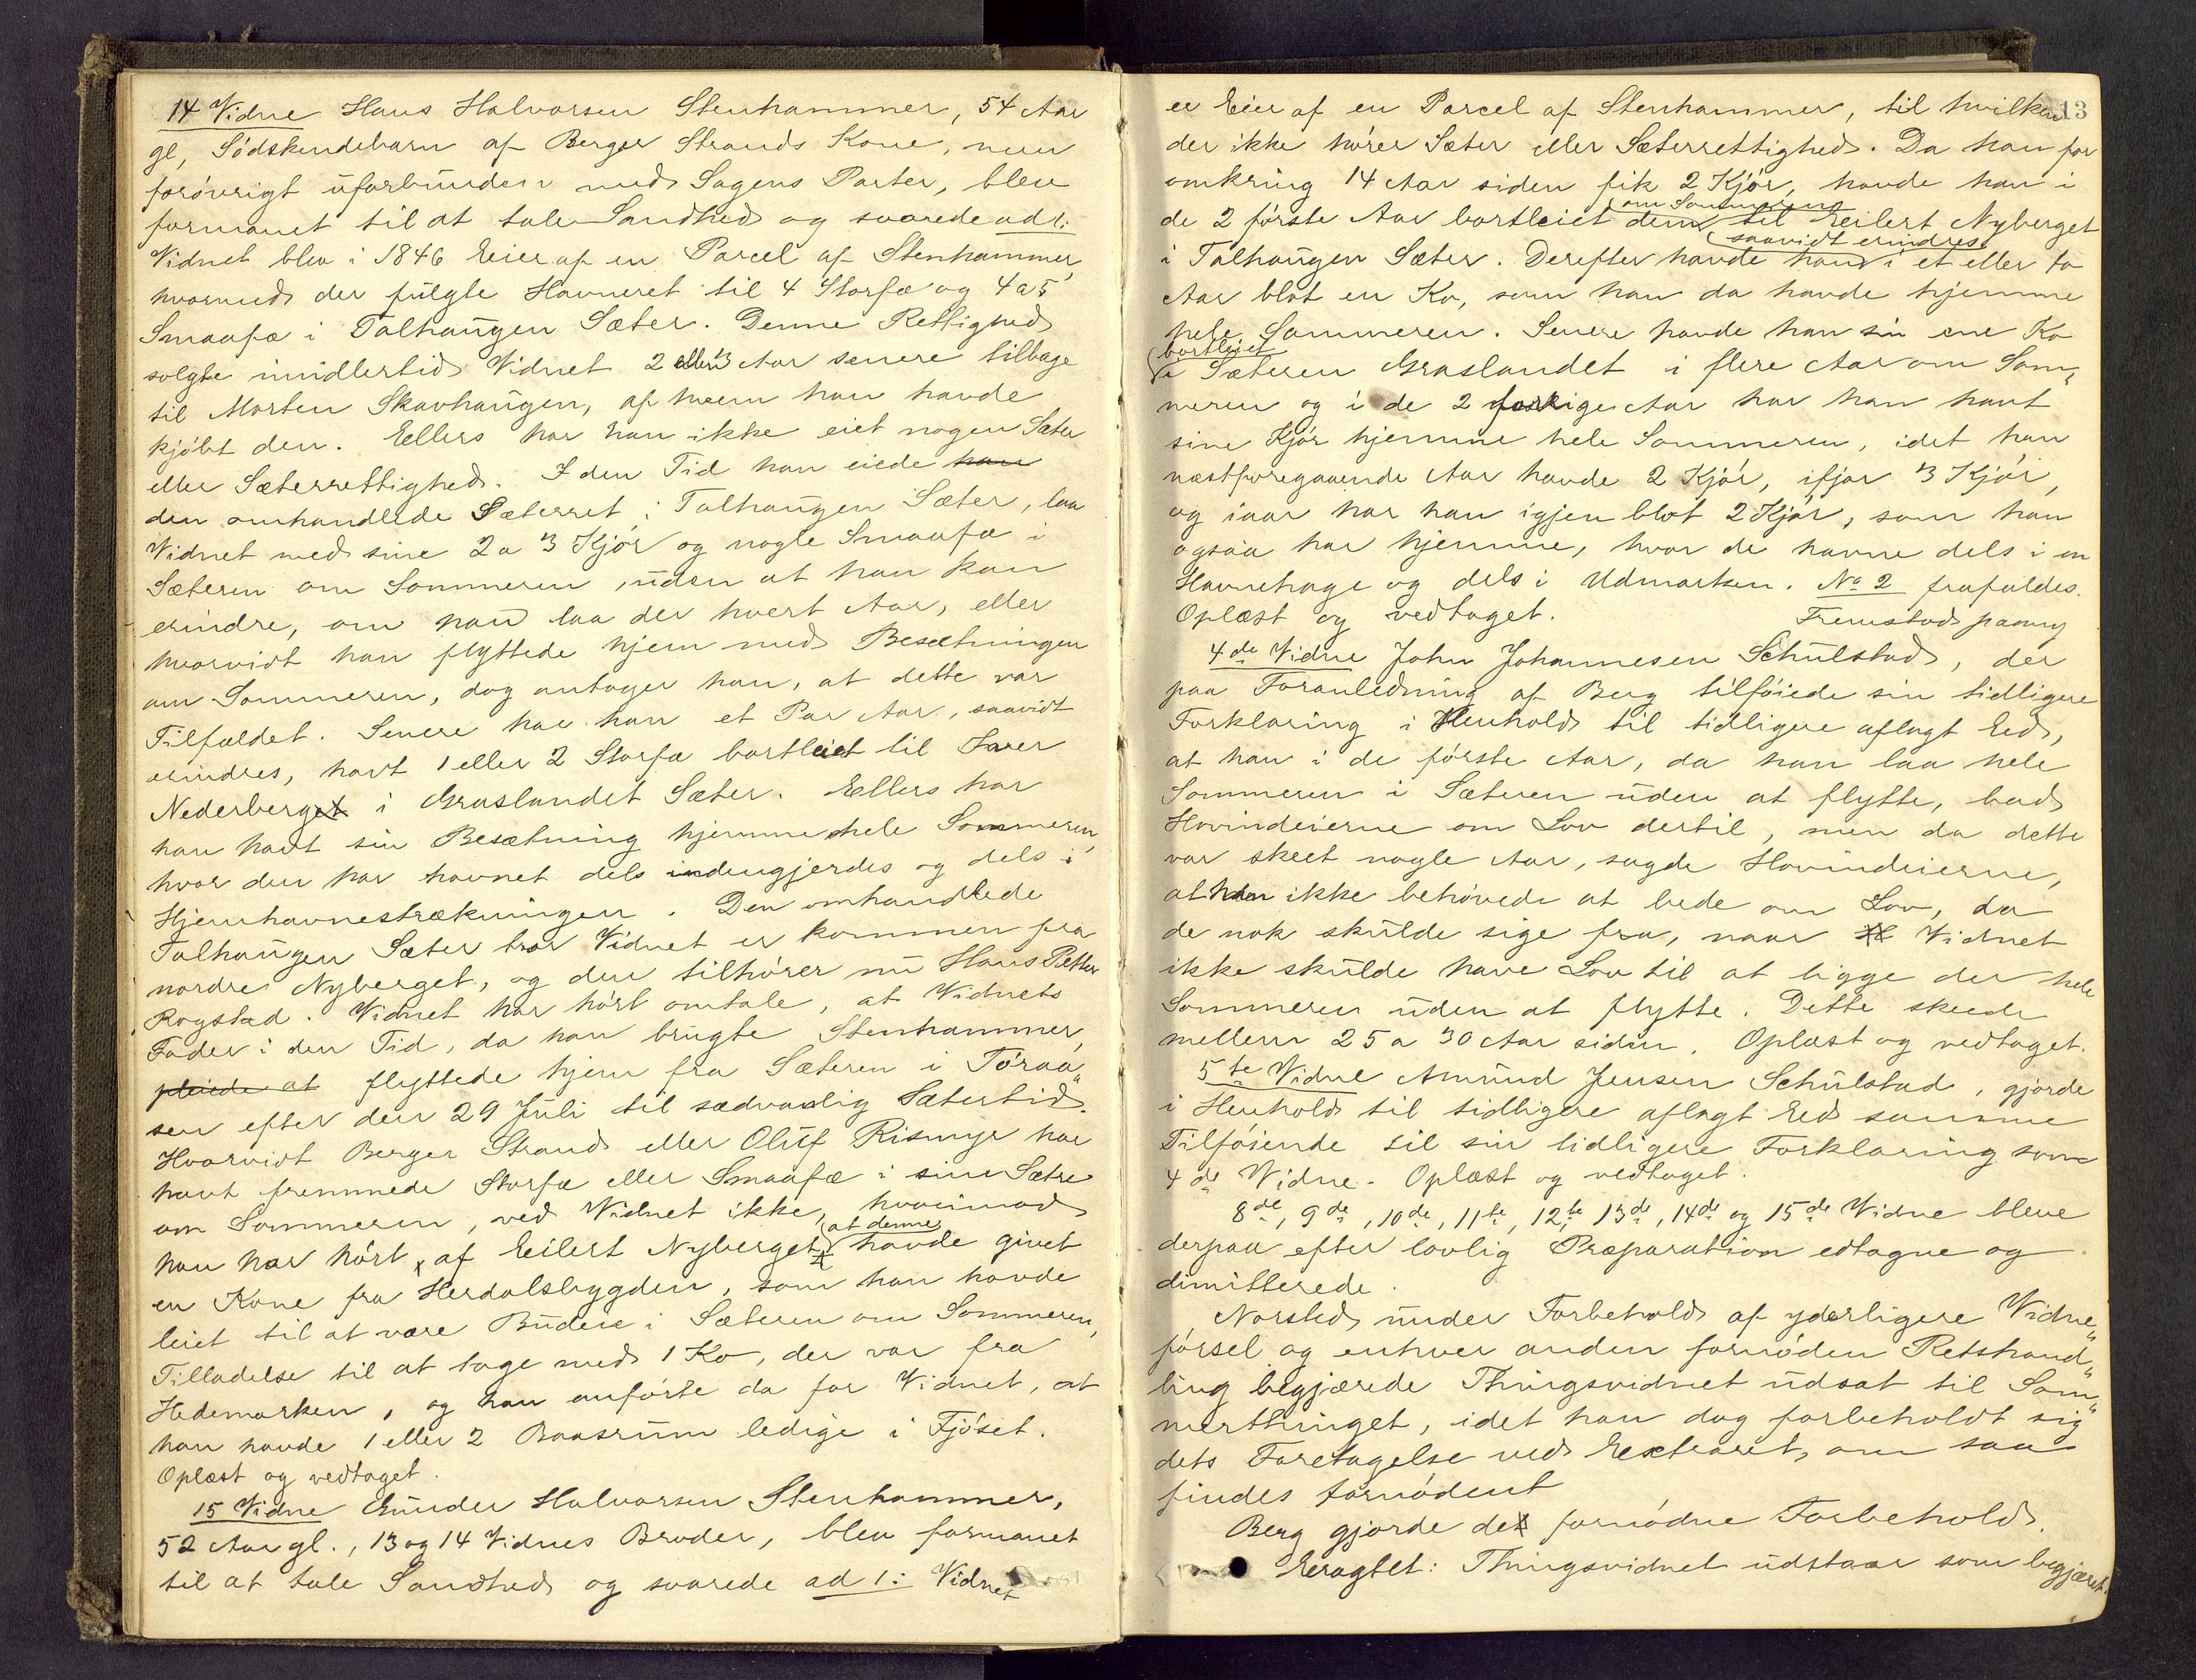 14 Vidne Hans Halvorsen Stenhammer, 54 Aar
gl, Södskendebarn af Berger Strands Kone, men
forövrigt uforbunden med Sagens Parter, blev
formanet til at tale Sandhed og svarede ad 1:
Vidnet blev i 1846 Eier af en Parcel af Stenhammer,
hvormed der fulgte Havneret til 4 Storfæ og 4 a 5
Smaafæ i Talhaugen Sæter. Denne Rettighed
solgte imidlertid Vidnet 2 eller 3 Aar senere tilbage
til Morten Skavhaugen, af hvem han havde
kjöbt den. Ellers har han ikke eiet nogen Sæter
eller Sæterrettighed. I den Tid han eiede han
den omhandlede Sæterret i Talhaugen Sæter, laa
Vidnet med sine 2 a 3 Kjör og nogle Smaafæ i
Sæteren om Sommeren, uden at han kan
erindre, om han laa der hvert Aar, eller
hvorvidt han flyttede hjem med Besætningen
om Sommeren, dog antager han, at dette var
Tilfældet. Senere har han et Par Aar, saavidt
erindres, havt 1 eller 2 Storfæ bortleiet til Iver
Nederberget i Graslandet Sæter. Ellers har
han havt sin Besætning hjemme hele Sommeren,
hvor den har havnet dels indengjerdes og dels i
Hjemhavnestrækningen. Den omhandlede
Talhaugen Sæter tror Vidnet er kommen fra
nordre Nyberget, og den tilhörer nu Hans Petter
Rogstad. Vidnet har hört omtale, at Vidnets
Fader i den Tid, da han brugte Stenhammer,
pleiede at flyttede hjem fra Sæteren i Töraa„
sen efter den 29 Juli til sædvanlig Sætertid.
Hvorvidt Berger Strand eller Oluf Rismyr har
havt fremmede Storfæ eller Smaafæ i sine Sætre
om Sommeren, ved Vidnet ikke, hvorimod
han har hört af Eilert Nyberget, (at denne) havde givet
en Kone fra Herdalsbygden, som han havde
leiet til at være Budeie i Sæteren om Sommeren,
Tilladelse til at tage med 1 Ko, der var fra
Hedemarken, og han anförte da for Vidnet, at
han havde 1 eller 2 Baasrum ledige i Fjöset.
Oplæst og vedtaget.
15 Vidne Gunder Halvorsen Stenhammer,
52 Aar gl., 13 og 14 Vidnes Broder, blev formanet
til at tale Sandhed og svarede ad 1: Vidnet
13
er Eier af en Parcel af Stenhammer, til hvilken
der ikke hörer Sæter eller Sæterrettighed. Da han for
omkring 14 Aar siden fik 2 Kjör, havde han i
de 2 förste Aar bortleiet dem (om Sommeren) til Eilert Nyberget
i Talhaugen Sæter. Derefter havde han (saavidt erindres) i et eller to
Aar blot en Ko, som han da havde hjemme
hele Sommeren. Senere havde han sin ene Ko
(bortleiet) i Sæteren Graslandet i flere Aar om Som„
meren og i de 2 forrige Aar har han havt
sine Kjör hjemme hele Sommeren, idet han
næstforegaaende Aar havde 2 Kjör, ifjor 3 Kjör,
og iaar har han igjen blot 2 Kjör, som han
ogsaa har hjemme, hvor de havne dels i en
Havnehage og dels i Udmarken. No 2 frafaldes.
Oplæst og vedtaget.
Fremstod paany
4de Vidne John Johannesen Schulstad, der
paa Foranledning af Berg tilföiede sin tidligere
Forklaring i Henhold til tidligere aflagt Eed,
at han i de förste Aar, da han laa hele
Sommeren i Sæteren uden at flytte, bad
Hovindeierne om Lov dertil, men da dette
var skeet nogle Aar, sagde Hovindeierne,
at han ikke behövede at bede om Lov, da
de nok skulde sige fra, naar Vidnet
ikke skulde have Lov til at ligge der hele
Sommeren uden at flytte. Dette skeede
mellem 25 a 30 Aar siden. Oplæst og vedtaget.
5te Vidne Amund Jensen Schulstad, gjorde
i Henhold til tidligere aflagt Eed samme
Tilföiende til sin tidligere Forklaring som
4de Vidne. Oplæst og vedtaget.
8de, 9de, 10de, 11te, 12te, 13de, 14de og 15de Vidne bleve
derpaa efter lovlig Præparation edtagne og
dimitterede.
Norsted under Forbehold af yderligere Vidne„
försel og enhver anden fornöden Retshand„
ling begjærede Thingsvidnet udsat til Som„
merthinget, idet han dog forbeholdt sig
dets Foretagelse ved Extraret, om saa
findes fornödent
Berg gjorde det fornödne Forbehold.
Eragtet: Thingsvidnet udstaar som begjæret.